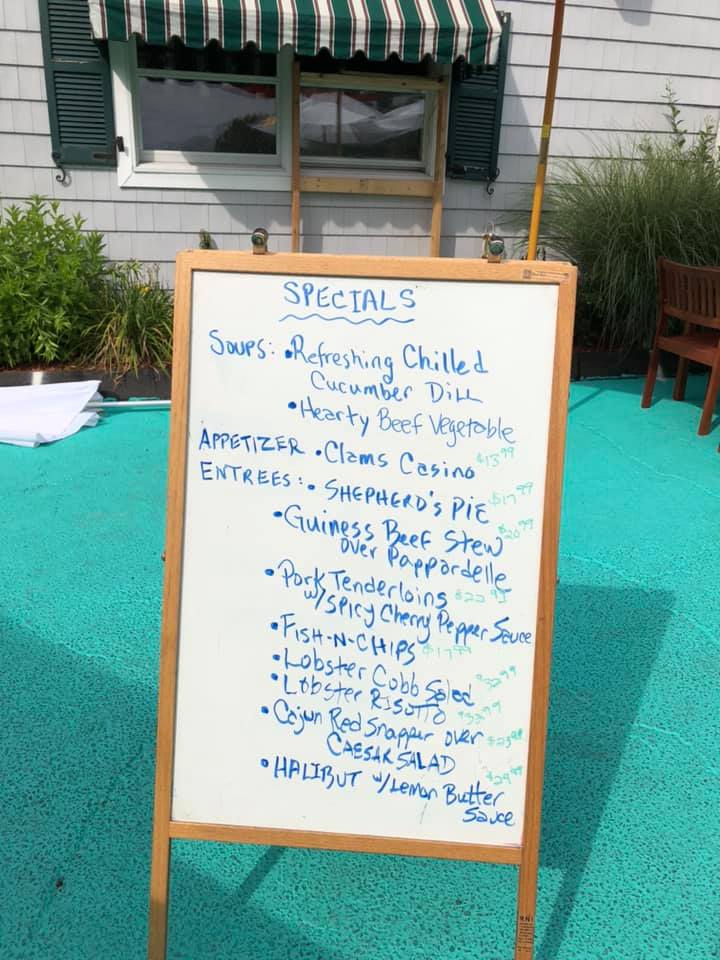 SPECIALS
Soups: •Refreshing Chilled
Cucumber Dill
•Hearty Beef Vegetable
APPETIZER •Clams Casino $13.99
ENTREES: • SHEPHERD'S PIE $17.99
•Guiness Beef Stew $20.99
over Pappardelle
•Pork Tenderloins $22.95
w/SPICY Cherry Pepper Sauce
•FISH-N-CHIPS $17.99
•Lobster Cobb Salad $32.99
•Lobster RISOTTO $32.99
•Cajun Red Snapper over $23.99
CAESAR SALAD
•HALIBUT w/Lemon Butter $29.99
Sauce